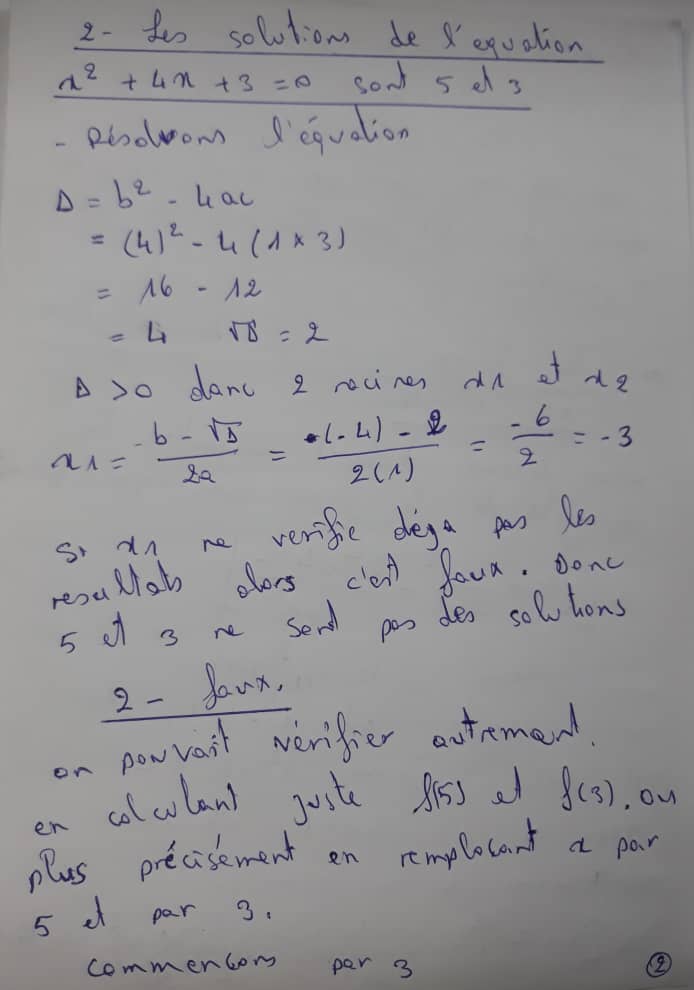 2- Les solutions de l'equation
x² + 4x + 3 = 0 sont 5 et 3
- Résolvons l'équation
Δ = b² - 4ac
= (4)² - 4(1 × 3)
= 16 - 12
= 4 √Δ = 2
Δ > 0 donc 2 racines x1 et x2
x1 = -b - √Δ / 2a = (-4) - 2 / 2(1) = -6 / 2 = -3
Si x1 ne verifie déja pas les
resultats alors c'est faux. Donc
5 et 3 ne sont pas des solutions
2 - faux.
on pouvait vérifier autrement.
en calculant juste f(5) et f(3). ou
plus précisément en remplacant x par
5 et par 3.
commencons par 3
2